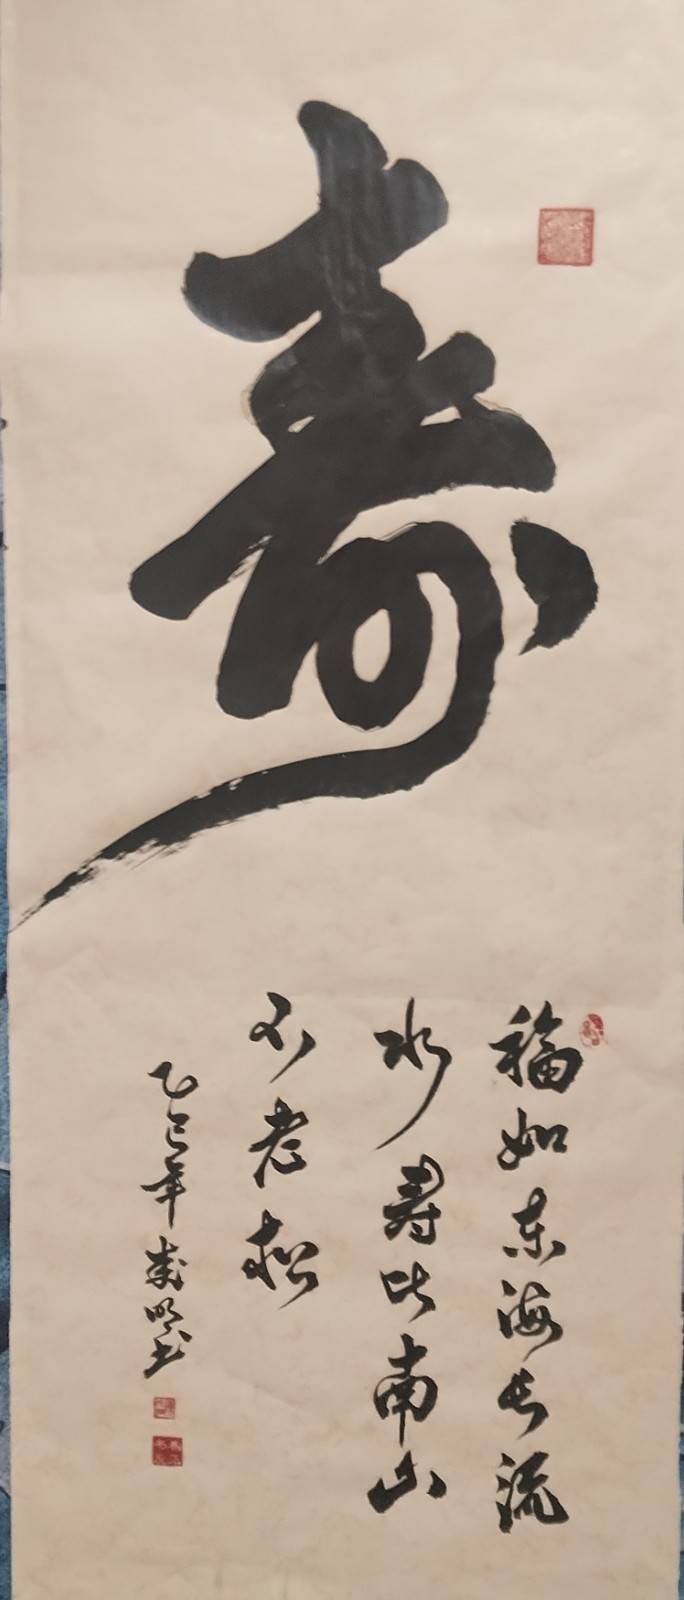 寿
福如东海长流
水寿比南山
不老松
乙巳年